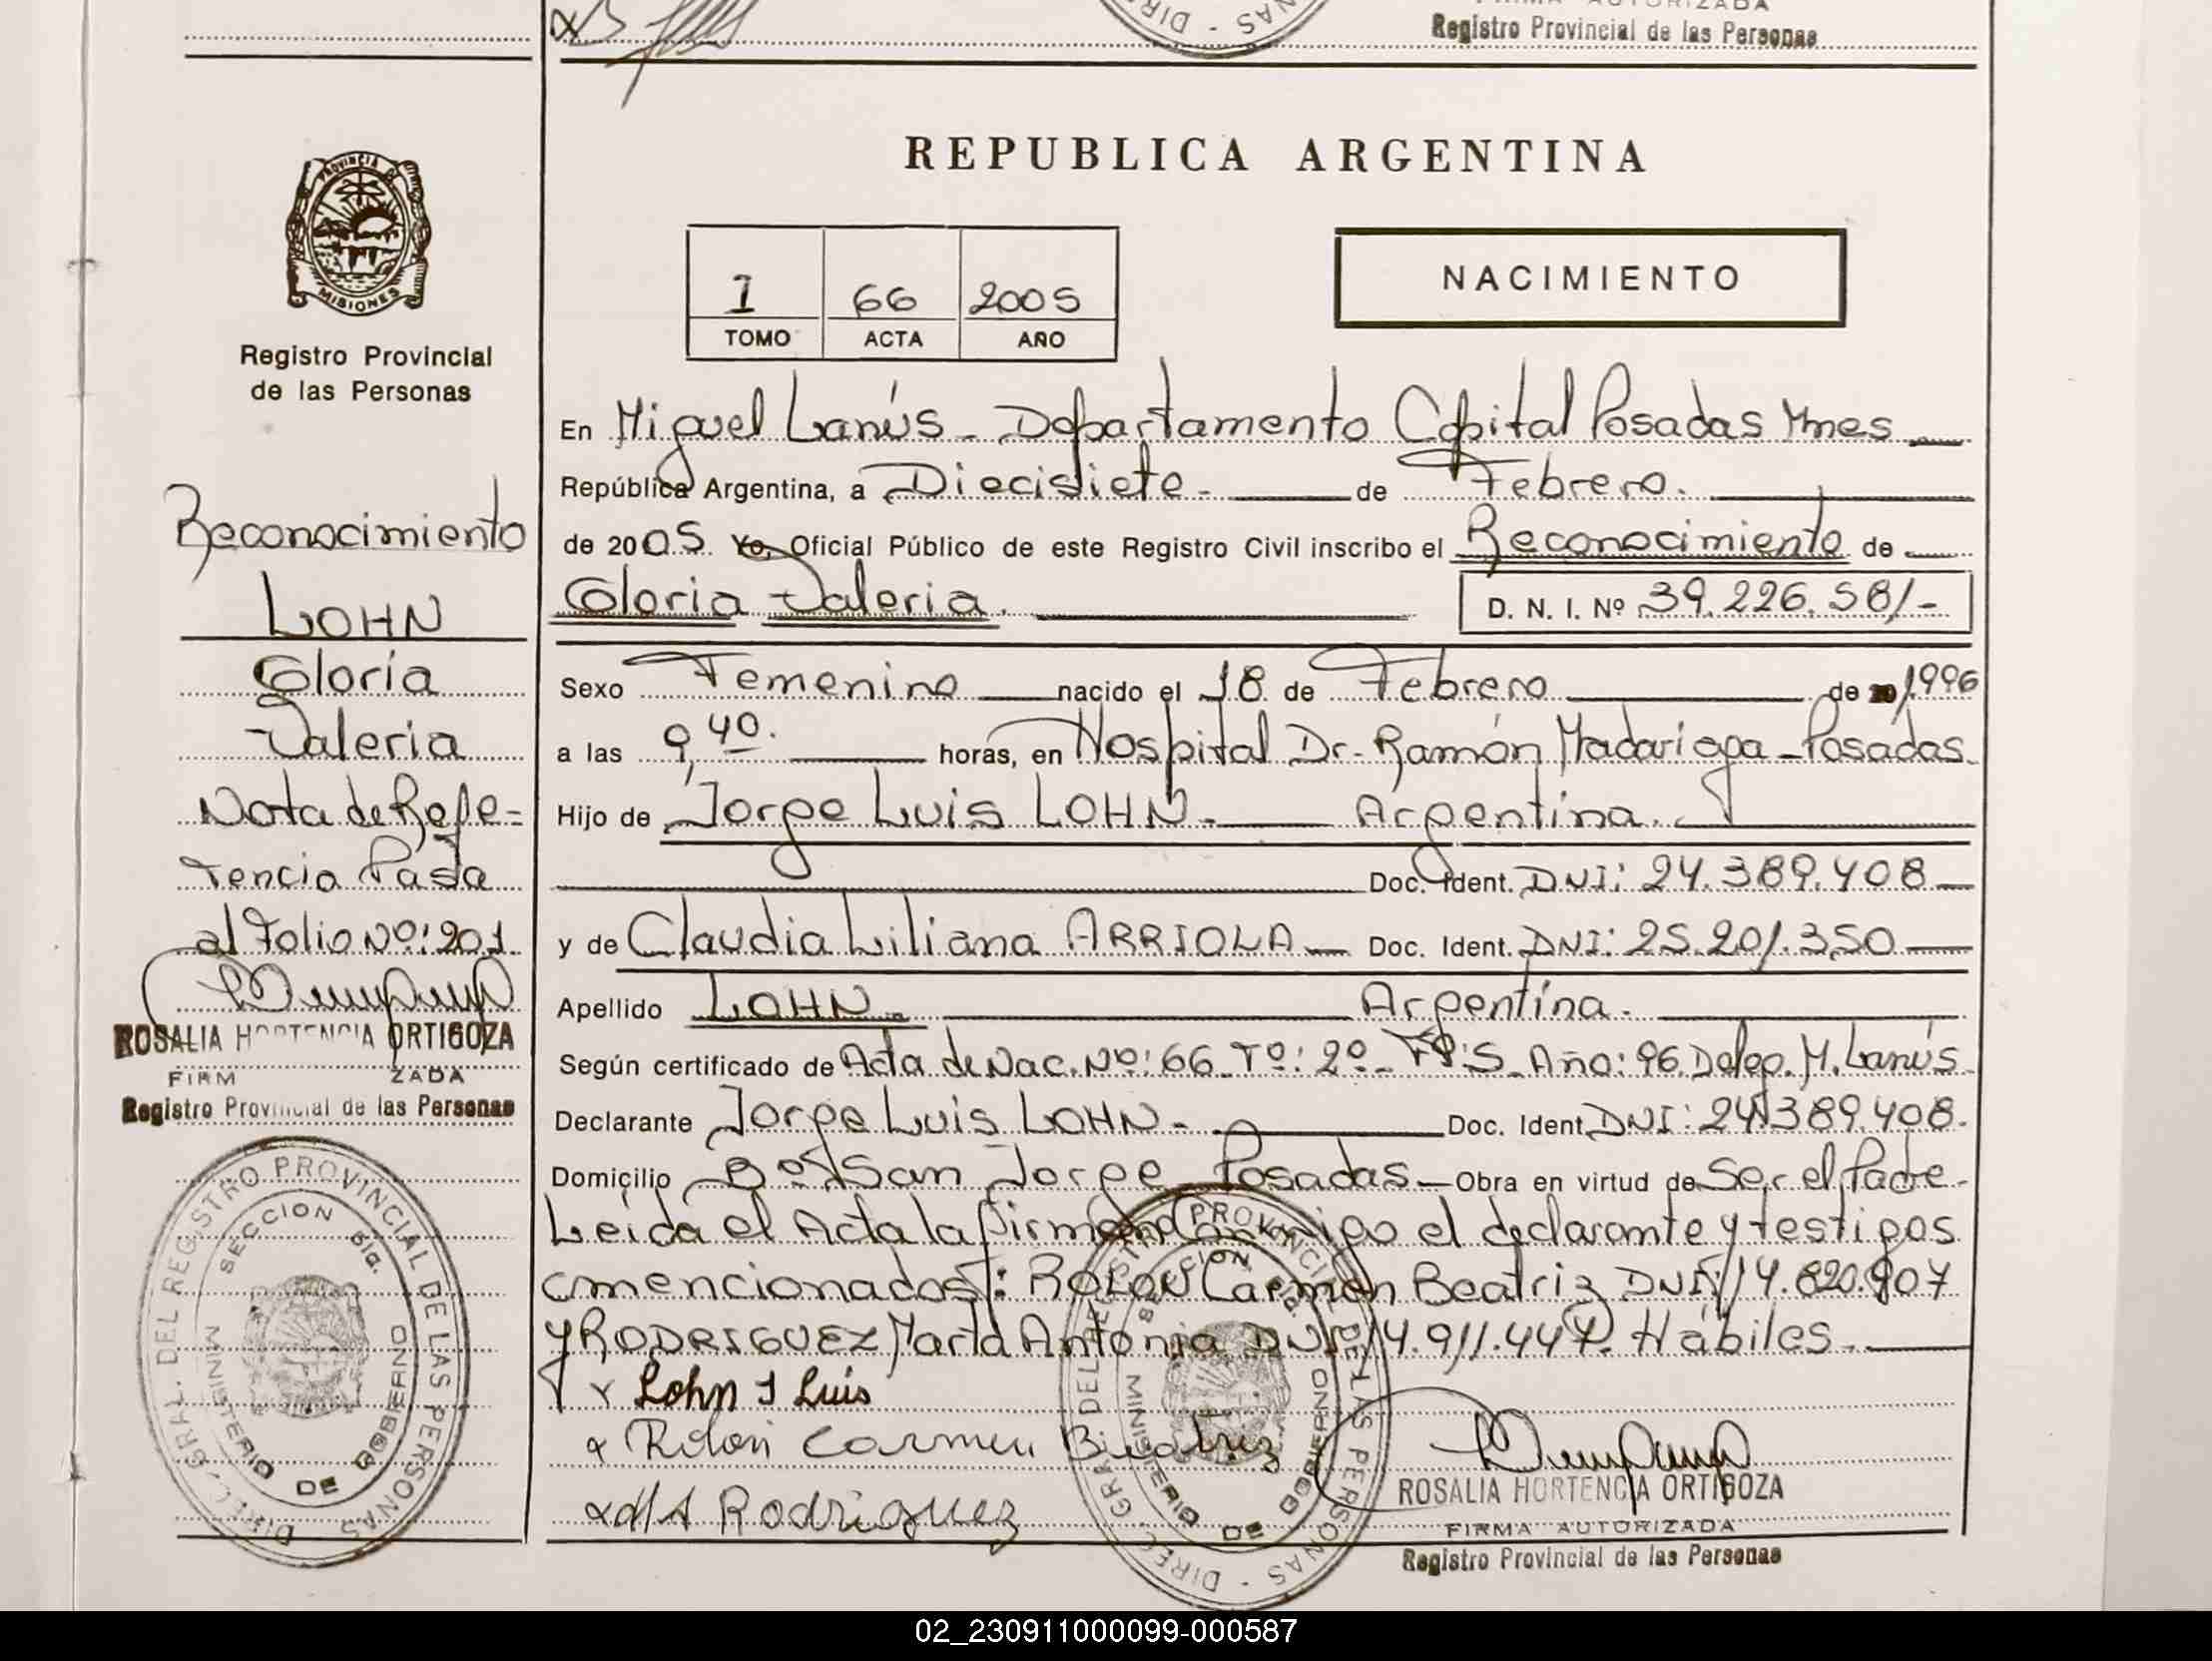 FIRMA AUTORIZADA
Registro Provincial de las Personas
DIREC - SAN
REPUBLICA ARGENTINA
PROVINCIA DE
MISIONES
Registro Provincial
de las Personas
1 66 2005
TOMO ACTA AÑO
NACIMIENTO
Reconocimiento
LOHN
Gloria
Valeria
Nota de Refe=
rencia Pasa
al Folio Nº: 201.
ROSALIA HORTENCIA ORTIGOZA
FIRM ZADA
Registro Provincial de las Personas
DIREC. GRAL. DEL REGISTRO PROVINCIAL DE LAS PERSONAS
SECCION 5ta.
MINISTERIO DE GOBIERNO
En Miguel Lanús - Departamento Capital Posadas Mnes
República Argentina, a Diecisiete - de Febrero.
de 2005. Yo, Oficial Público de este Registro Civil inscribo el Reconocimiento de
Gloria Valeria. D. N. I. Nº 39.226.581-
Sexo Femenino nacido el 18 de Febrero de 20/1996
a las 9,40. horas, en Hospital Dr- Ramón Madariaga - Posadas.
Hijo de Jorge Luis LOHN. - Argentina.
Doc. Ident. DNI: 24.389.408
y de Claudia Liliana ARRIOLA - Doc. Ident. DNI: 25.201.350
Apellido LOHN. Argentina.
Según certificado de Acta de Nac. Nº: 66 Tº: 2º - Fº: 5 - Año: 96 Deleg. M. Lanús
Declarante Jorge Luis LOHN - Doc. Ident. DNI: 24.389.408.
Domicilio Bº San Jorge Posadas - Obra en virtud de Ser el Padre -
Leída el Acta la firman conmigo el declarante y testigos
mencionados: ROLON Carmen Beatriz DNI: 14.820.907
y RODRIGUEZ Marta Antonia DNI: 14.911.447. Hábiles.
x Lohn J Luis
x Rolon Carmen Beatriz
x Rodriguez
DIREC. GRAL. DEL REGISTRO PROVINCIAL DE LAS PERSONAS
SECCION 5ta.
MINISTERIO DE GOBIERNO
ROSALIA HORTENCIA ORTIGOZA
FIRMA AUTORIZADA
Registro Provincial de las Personas
02_230911000099-000587